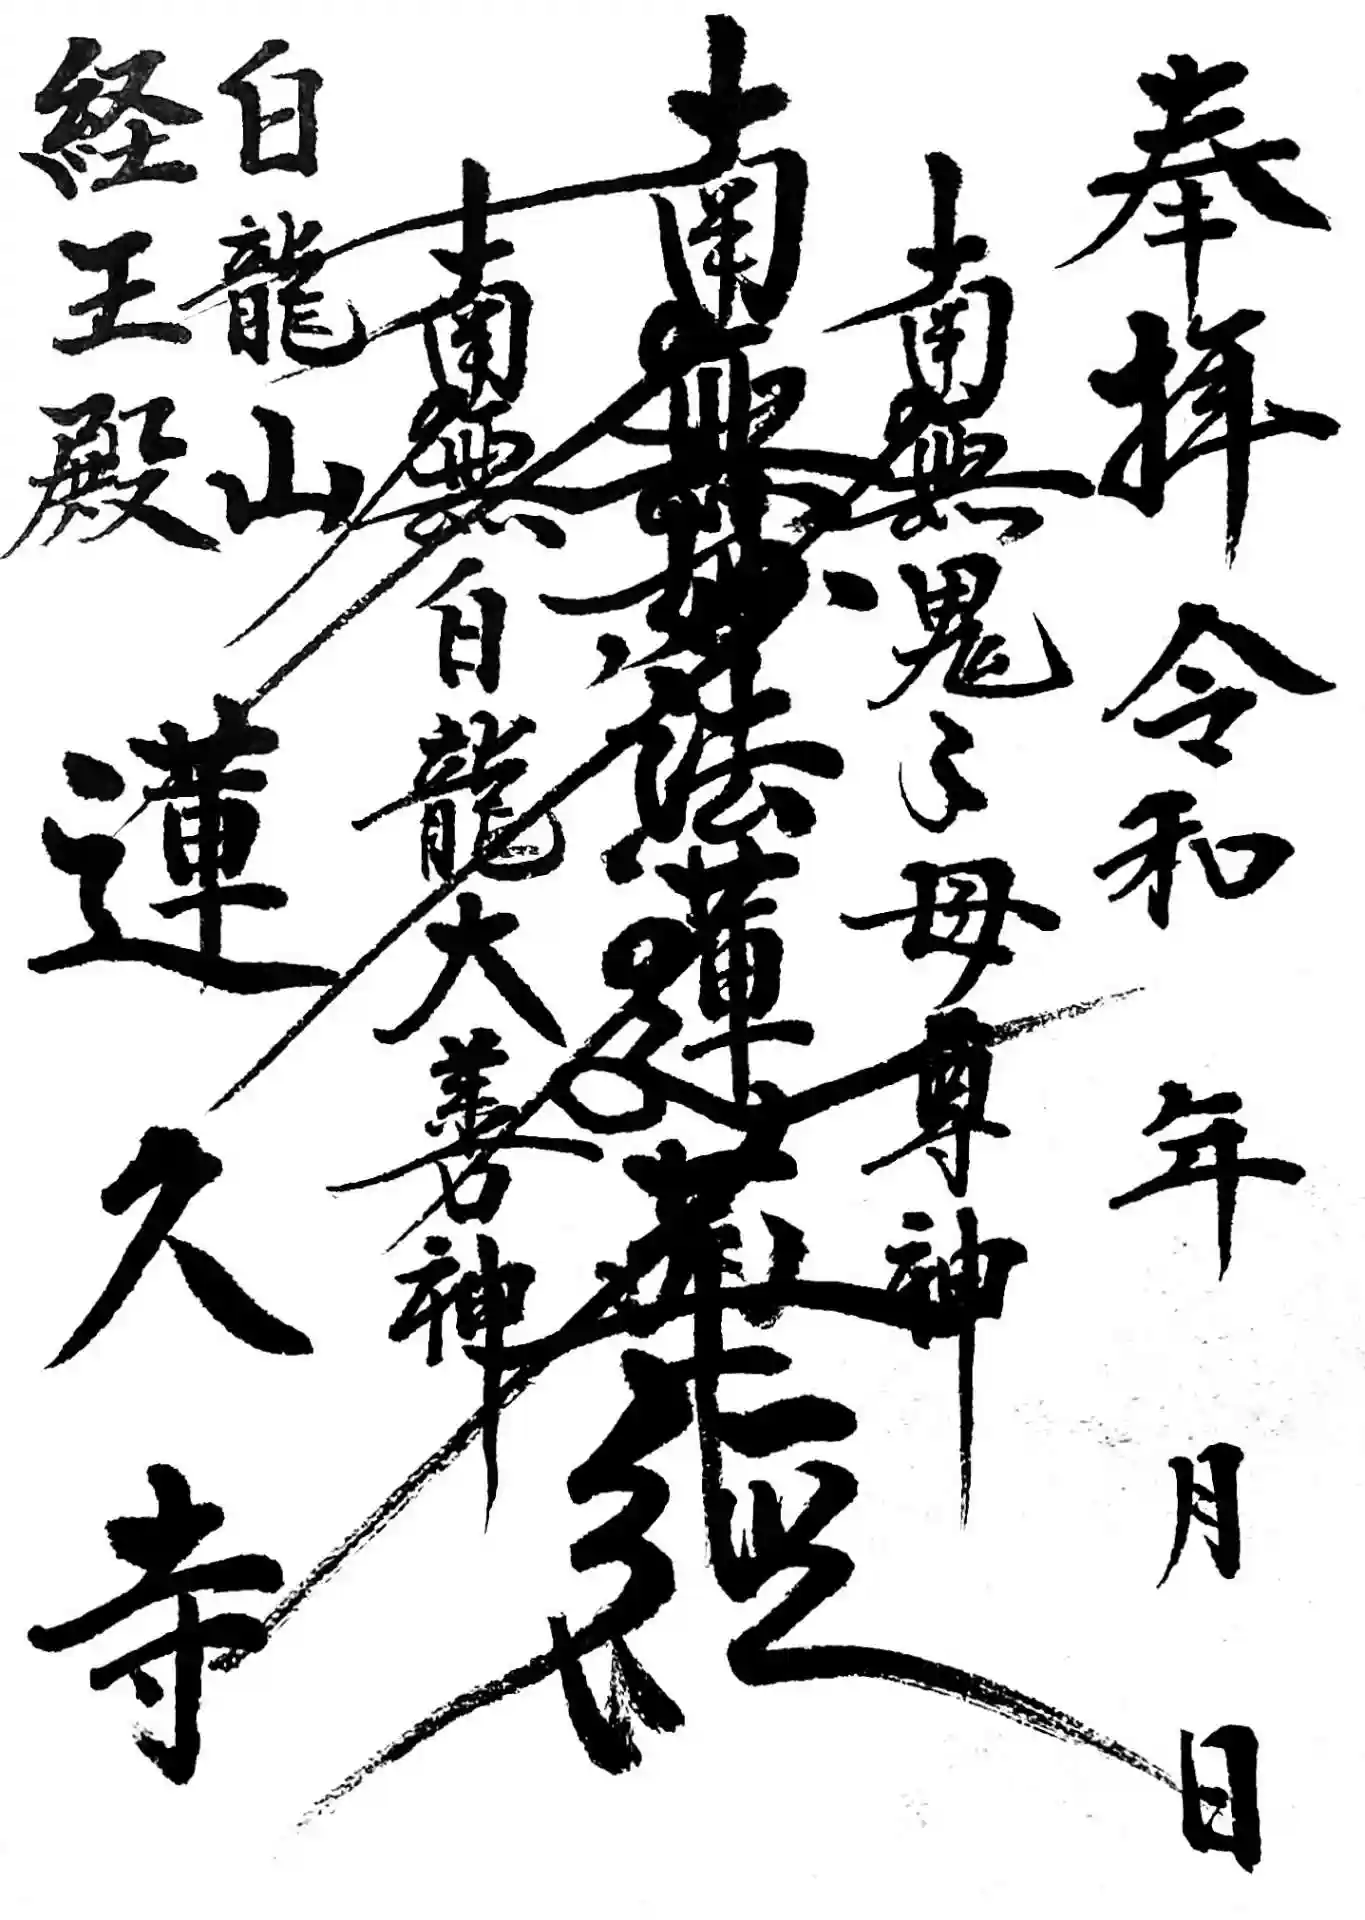 奉拝 令和 年 月 日
南無鬼子母尊神
南無妙法蓮華経
南無白龍大善神
白龍山
経王殿
蓮久寺